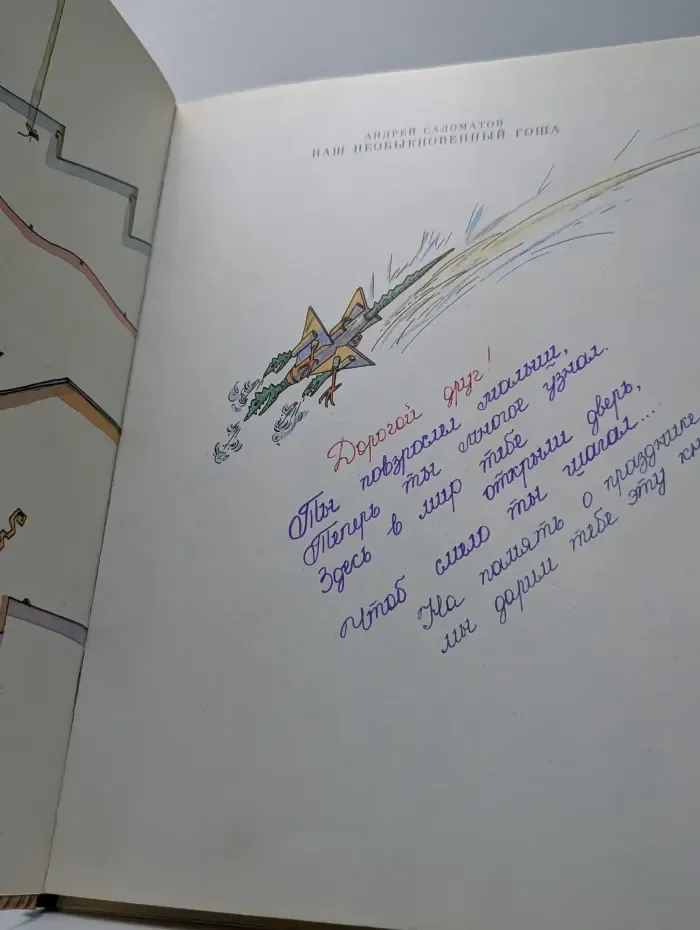 АНДРЕЙ САЛОМАТОВ
НАШ НЕОБЫКНОВЕННЫЙ ГОША
Дорогой друг!
Ты повзрослел малыш,
Теперь ты многое узнал.
Здесь в мир тебе открыли дверь,
Чтоб смело ты шагал...
На память о празднике
мы дарим тебе эту